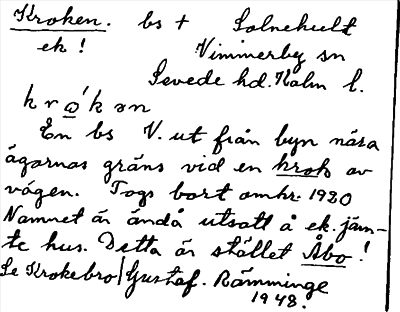 Kroken. bs + Solnehult
ek! Vimmerby sn
Sevede hd. Kalm l.
kro̲´kən
En bs V. ut från byn nära
ägornas gräns vid en krok av
vägen. Togs bort omkr. 1920
Namnet är ändå utsatt å ek. jäm-
te hus. Detta är stället Åbo!
Se Krokebro/Gustaf. Rämminge
1948.